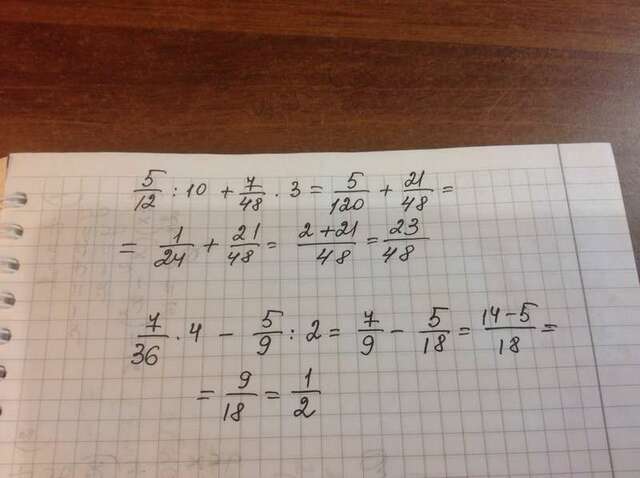 5/12 : 10 + 7/48 · 3 = 5/120 + 21/48 =
= 1/24 + 21/48 = (2+21)/48 = 23/48
7/36 · 4 - 5/9 : 2 = 7/9 - 5/18 = (14-5)/18 =
= 9/18 = 1/2